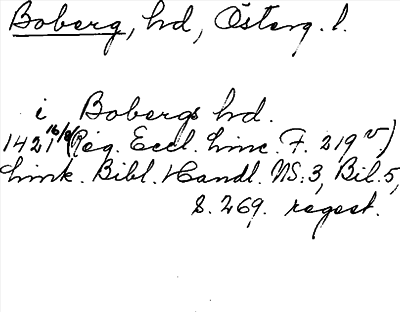 Boberg, hd, Österg. l.
i Bobergs hd.
1421 16/8 (Reg. Eccl. Linc. F. 219 v.)
Link. Bibl. Handl. NS:3, Bil. 5,
S. 269. regest.